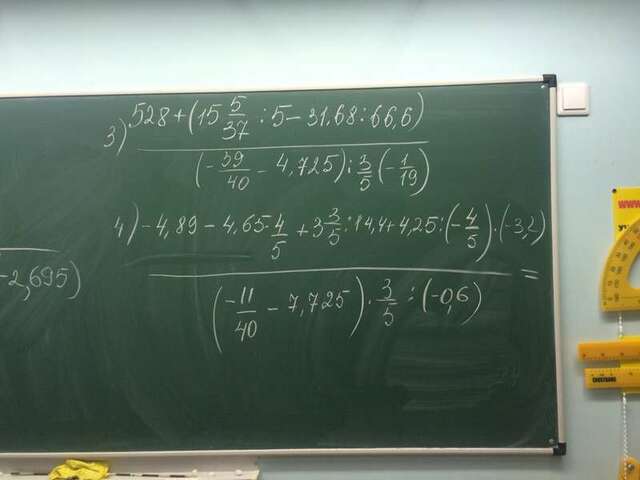 3) 528 + (15 5/37 : 5 - 31,68 : 66,6)
(-39/40 - 4,725) : 3/5 (-1/19)
4) -4,89 - 4,65 · 4/5 + 3 3/5 : 14,4 + 4,25 : (-4/5) · (-3,2)
=
(-11/40 - 7,725) · 3/5 : (-0,6)
-2,695)
www